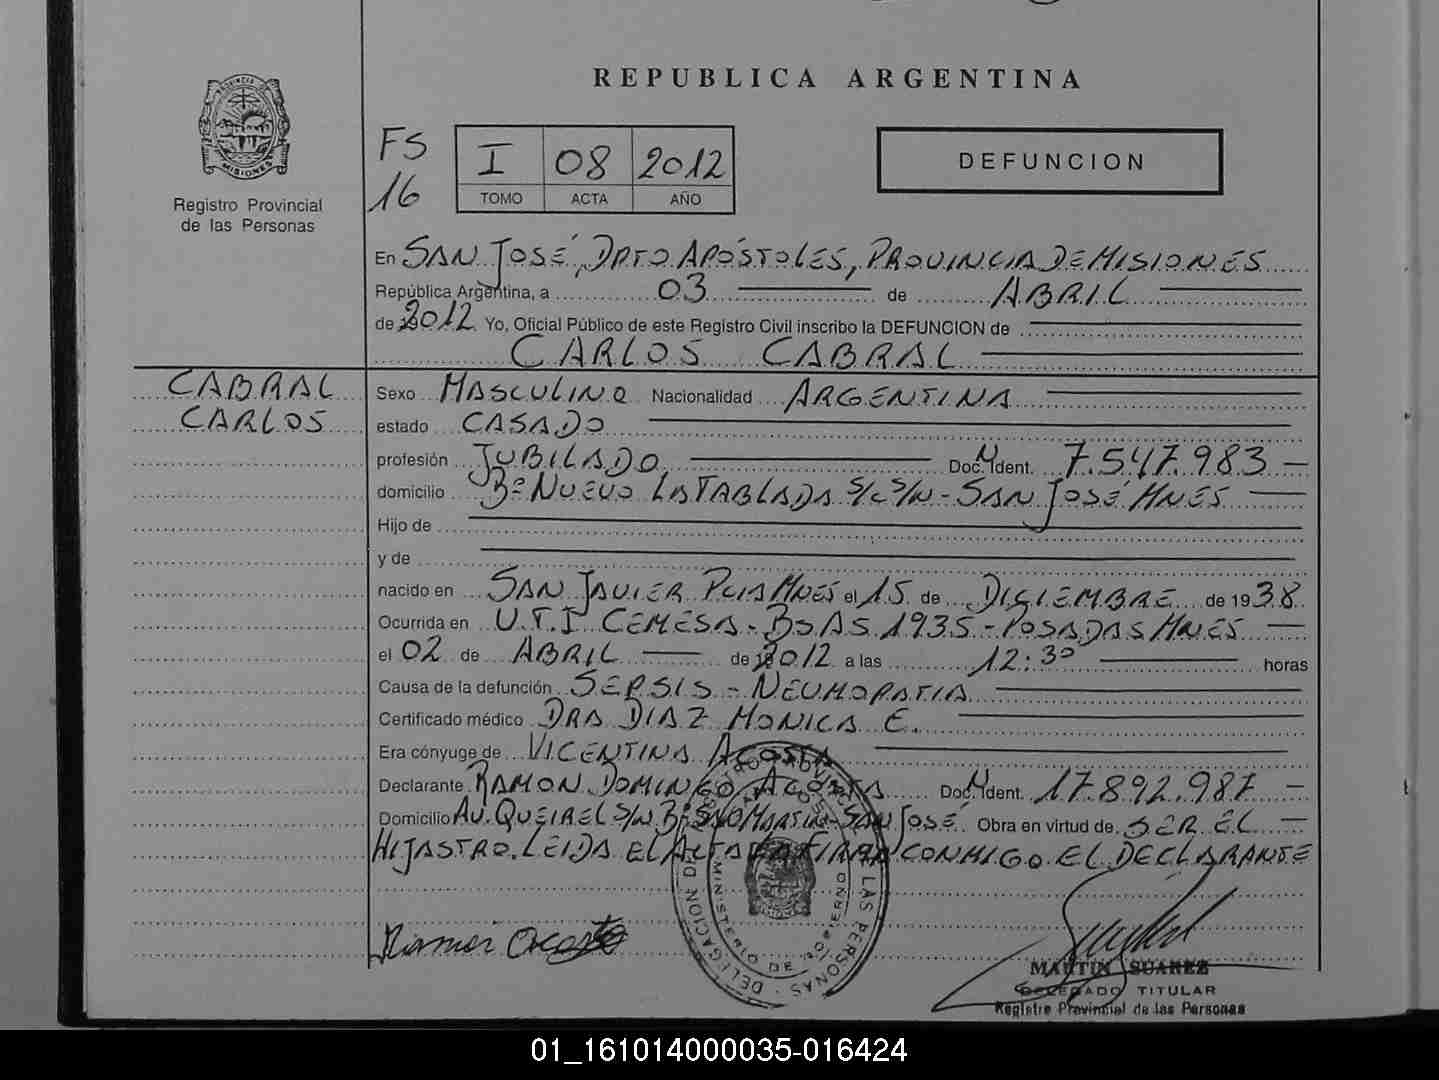 REPUBLICA ARGENTINA
PROVINCIA
MISIONES
Registro Provincial
de las Personas
FS
16
I 08 2012
TOMO ACTA AÑO
DEFUNCION
En SAN JOSÉ, DPTO APÓSTOLES, PROVINCIA DE MISIONES
República Argentina, a 03 de ABRIL
de 2012 Yo, Oficial Público de este Registro Civil inscribo la DEFUNCION de
CARLOS CABRAL
CABRAL
CARLOS
Sexo MASCULINO Nacionalidad ARGENTINA
estado CASADO
profesión JUBILADO Doc. N Ident. 7.547.983
domicilio Bº NUEVO LA TABLADA S/C S/N - SAN JOSÉ MNES
Hijo de
y de
nacido en SAN JAVIER PCIA MNES el 15 de DICIEMBRE de 1938
Ocurrida en U.T.I CEMESA - BS AS 1935 - POSADAS MNES
el 02 de ABRIL de 2012 a las 12:30 horas
Causa de la defunción SEPSIS - NEUMOPATIA
Certificado médico DRA DIAZ MONICA E.
Era cónyuge de VICENTINA ACOSTA
Declarante RAMON DOMINGO ACOSTA Doc. N Ident. 17.892.987
Domicilio AV. QUEIREL S/N Bº SAN MARTIN - SAN JOSÉ Obra en virtud de SER EL
HIJASTRO. LEIDA EL ACTA LA FIRMA CONMIGO EL DECLARANTE
Ramon Acosta
MARTIN SUAREZ
DELEGADO TITULAR
Registro Provincial de las Personas
01_161014000035-016424